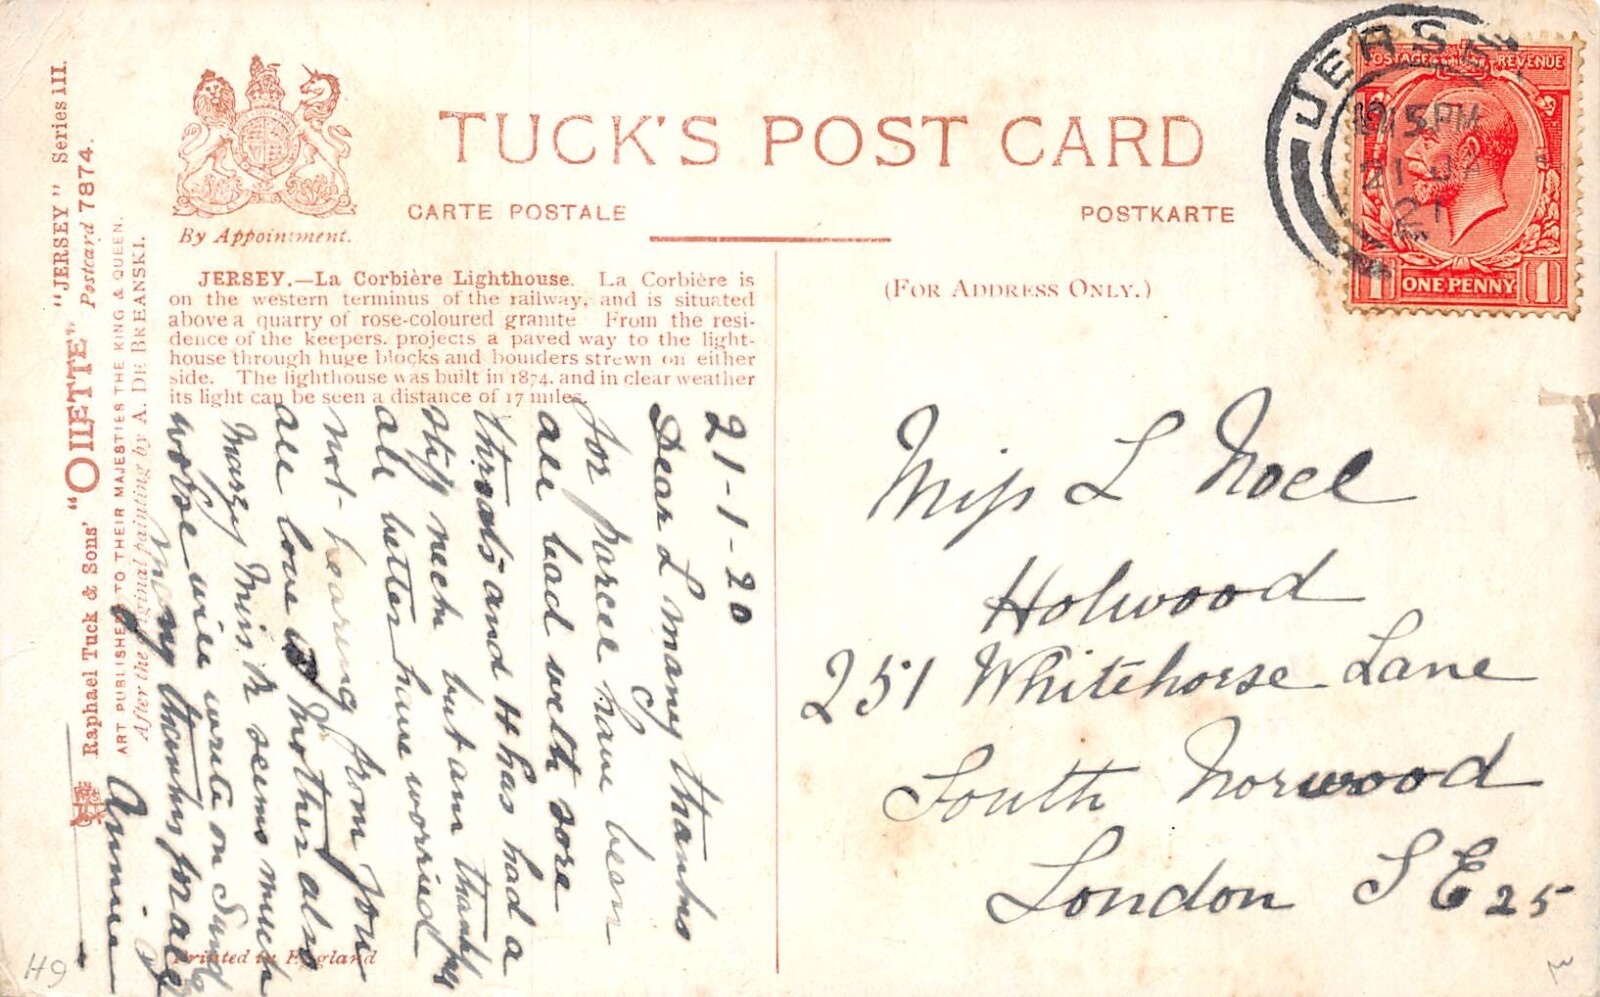 Raphael Tuck & Sons' "OILETTE" "JERSEY" Series III.
Postcard 7874.
ART PUBLISHED TO THEIR MAJESTIES THE KING & QUEEN.
After the original painting by A. DE BREANSKI.
By Appointment.
TUCK'S POST CARD
CARTE POSTALE
POSTKARTE
JERSEY.—La Corbière Lighthouse. La Corbière is
on the western terminus of the railway, and is situated
above a quarry of rose-coloured granite From the resi-
dence of the keepers. projects a paved way to the light-
house through huge blocks and boulders strewn on either
side. The lighthouse was built in 1874. and in clear weather
its light can be seen a distance of 17 miles.
21-1-20
Dear L many thanks
for parcel have been
all bad with sore
throats and H has had a
stiff neck but am thankful
all better have worried
not hearing from you
all love to Mother also
Mary Mrs R seems much
worse will write on Sund
many thanks for all
Annie
Printed in England
H9
(FOR ADDRESS ONLY.)
JERSEY
15 PM
21 JA
21
POSTAGE REVENUE
1 ONE PENNY 1
Miss L Noel
Holwood
251 Whitehorse Lane
South Norwood
London S E 25